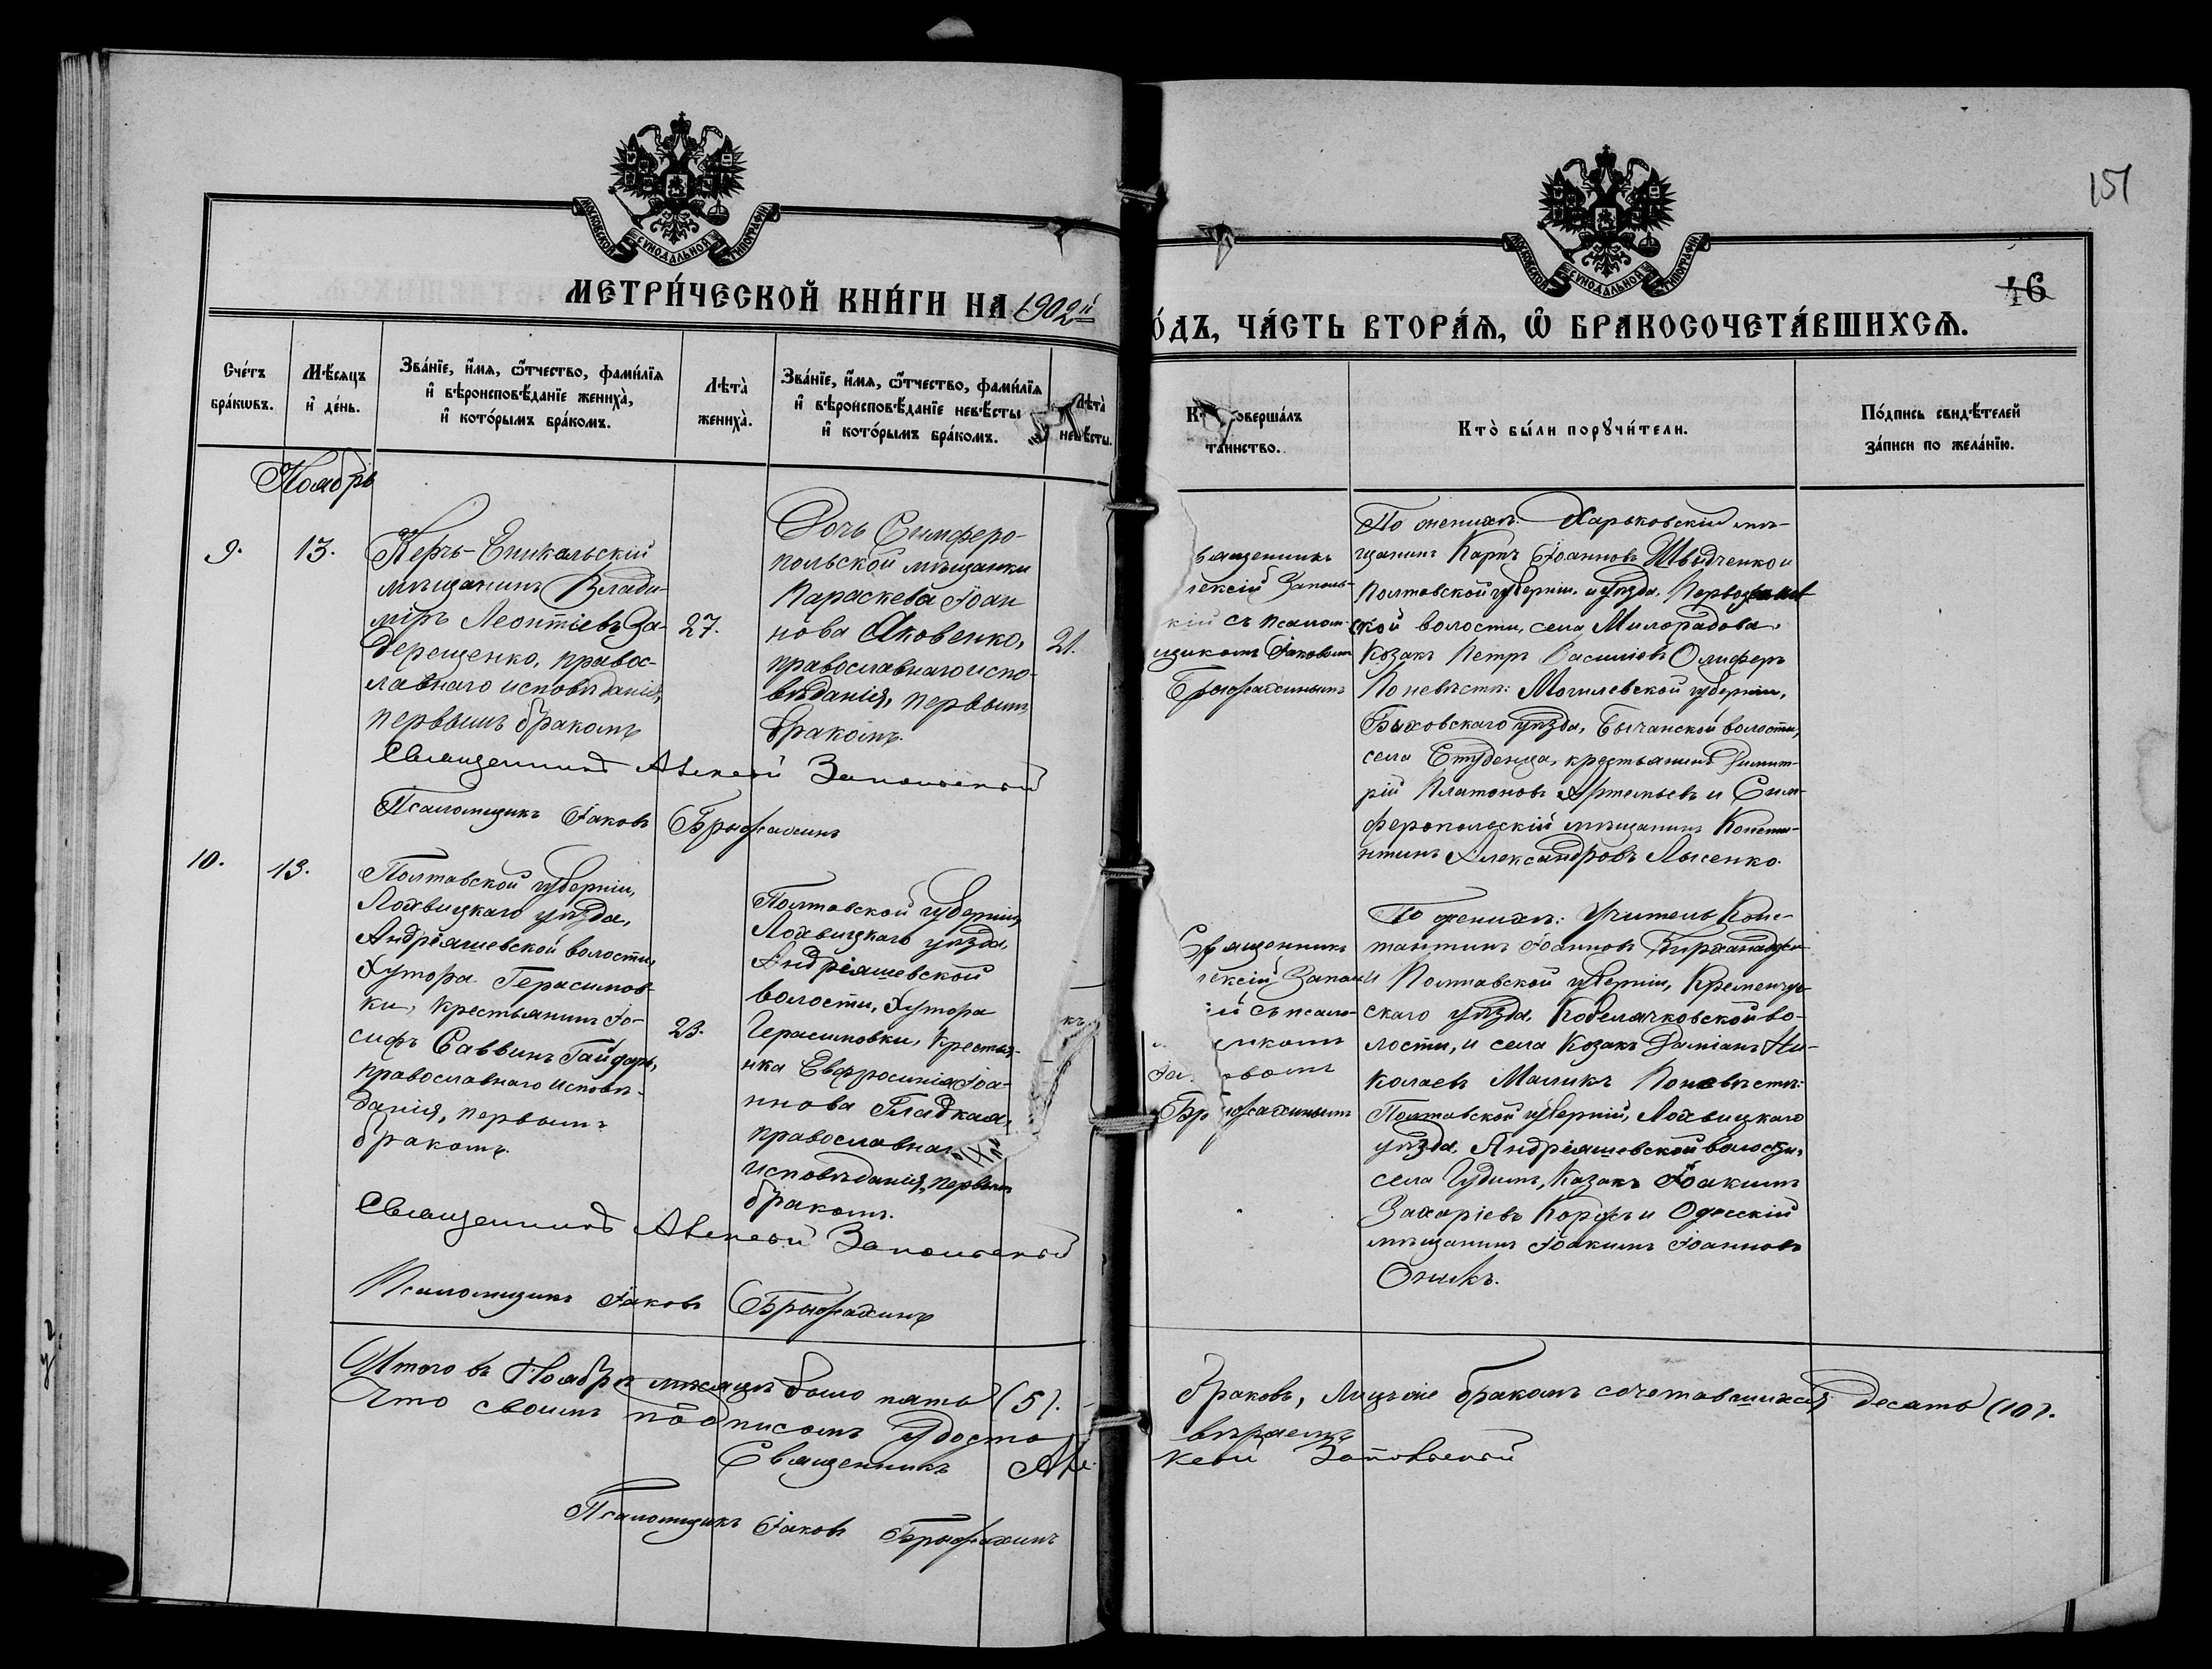 151
МОСКОВСКОЙ СѴНОДАЛЬНОЙ ТИПОГРАФІИ
МОСКОВСКОЙ СѴНОДАЛЬНОЙ ТИПОГРАФІИ
46
МЕТРИ́ЧЕСКОЙ КНИ́ГИ НА 1902й
О́ДЪ, ЧА́СТЬ ВТОРА́Я, Ѽ БРАКОСОЧЕТА́ВШИХСЯ.
Сче́тъ
бра́кѡвъ.
Мѣ́сяцъ
и҆ де́нь.
Зва́нїе, и҆́мя, ѻ҆́тчество, фами́лїя
и҆ вѣроисповѣ́данїе жениха̀,
и҆ кото́рымъ бра́комъ.
Лѣта̀
жениха̀.
Зва́нїе, и҆́мя, ѻ҆́тчество, фами́лїя
и҆ вѣроисповѣ́данїе невѣ́сты
и҆ кото́рымъ бра́комъ.
Лѣта̀
невѣ́сты.
соверша́лъ
та́инство.
Кто̀ бы́ли порꙋчи́тели.
По́дпись свидѣ́телей
за́писи по жела́нїю.
Ноябрь
9.
13.
Керчь-Еникальскій
мѣщанинъ Влади-
міръ Леонтіевъ За-
дерещенко, правос-
лавнаго исповѣданія,
первымъ бракомъ
27.
Дочь Симферо-
польской мѣщанки
Параскева Іоан
нова Яковенко,
православнаго испо-
вѣданія, первымъ
бракомъ.
21.
Священникъ Алексѣй Запольскій
Псаломщикъ Іаковъ Брюжахинъ
вященникъ
лексій Заполь-
кій съ псалом-
щикомъ Іаковомъ
Брюжахинымъ
По женихѣ: Харьковскій мѣ-
щанинъ Карпъ Іоанновъ Швыдченко и
Полтавской губерніи и уѣзда,
ской волости, села Милорадова,
Козакъ Петръ Василіевъ Олиферъ
По невѣстѣ: Могилевской губерніи,
Быховскаго уѣзда, Бычанской волости,
села Студенца, крестьянинъ Димит-
рій Платоновъ Артемьевъ и Сим-
феропольскій мѣщанинъ Констан-
нтинъ Александровъ Лысенко.
10.
13.
Полтавской губерніи,
Лохвицкаго уѣзда,
Андріяшевской волости,
хутора Герасимов-
ки, крестьянинъ Іо-
сифъ Саввинъ Гайдарь,
православнаго исповѣ-
данія, первымъ
бракомъ.
23.
Полтавской губерніи,
Лохвицкаго уѣзда,
Андріяшевской
волости, хутора
Герасимовки, крестья-
нка Евфросинія Іоа-
ннова Гладкая,
православнаго
исповѣданія, первымъ
бракомъ.
Священникъ Алексѣй Запольскій
Псаломщикъ Іаковъ Брюжахинъ
Священникъ
лексій Заполь
ій съ псало-
щикомъ
Іа вомъ
Брюжахинымъ
По женихѣ: Учитель Конс-
тантинъ Іоанновъ
и Полтавской губерніи, Кременчуг-
скаго уѣзда, Кобелячковской во-
лости, и села Козакъ Даміанъ Ни-
колаевъ Маликъ По невѣстѣ:
Полтавской губерніи, Лохвицкаго
уѣзда, Андріяшевской волости,
села Гудимъ, Казакъ Іоакимъ
Захаріевъ Коржъ и Одесскій
мѣщанинъ Іоакимъ Іоанновъ
Оникъ.
Итого въ Ноябрѣ мѣсяцѣ было пять (5). браковъ, Лицъ же бракомъ сочетавшихся десять (10).
Что своимъ подписомъ удосто вѣряемъ
Священникъ Алексѣй Запольскій
Псаломщикъ Іаковъ Брюжахинъ